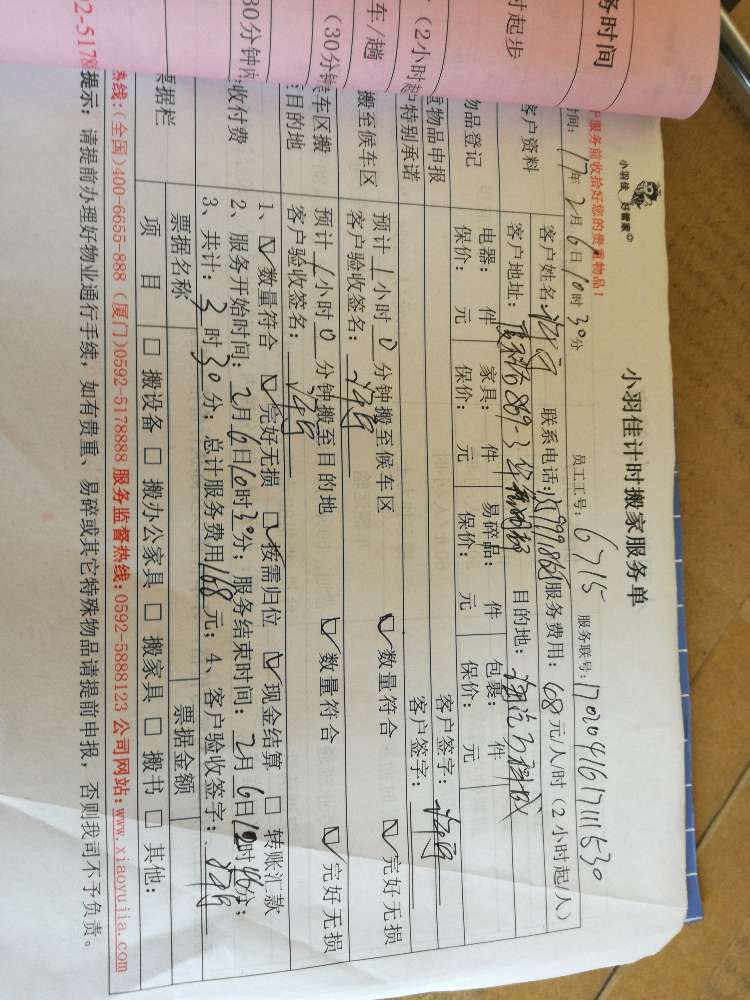 小羽佳 好管家
小羽佳计时搬家服务单
服务前收拾好您的贵重物品!
员工工号: 6715 服务联号: 17020416171111530
时间: 17年2月6日10时30分
客户资料
客户姓名: 联系电话: 服务费用: 68元/人/时(2小时起/人)
客户地址: 目的地:
物品登记
电器: 件 家具: 件 易碎品: 件 包裹: 件
保价: 元 保价: 元 保价: 元 保价: 元
重物品申报 客户签字:
特别承诺 客户签字:
搬至候车区
预计1小时0分钟搬至候车区 数量符合 完好无损
客户验收签名:
车区搬
至目的地
预计1小时0分钟搬至目的地 数量符合 完好无损
客户验收签名:
收付费
1、数量符合 完好无损 按需归位 现金结算 转账汇款
2、服务开始时间: 2月6日10时30分; 服务结束时间: 2月6日12时
3、共计: 时30分; 总计服务费用168元; 4、客户验收签字:
票据栏
票据名称 票据金额
项 目 搬设备 搬办公家具 搬家具 搬书 其他:
热线:(全国)400-6655-888 (厦门)0592-5178888 服务监督热线:0592-5888123 公司网站:www.xiaoyujia.com
提示: 请提前办理好物业通行手续, 如有贵重、易碎或其它特殊物品请提前申报, 否则我司不予负责。
务时间
时起步
(2小时
车/趟
(30分钟
30分钟内
92-5178